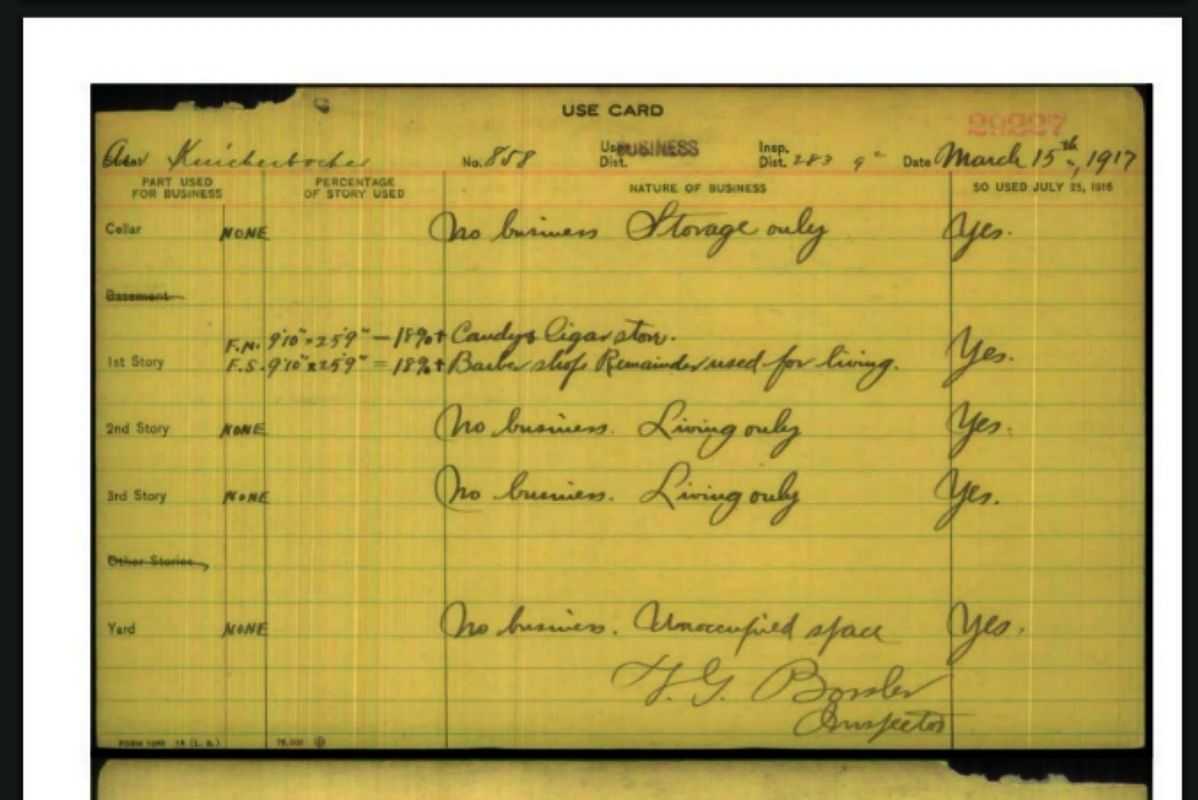 USE CARD
29227
Ave Knickerbocker No. 858 Use Dist. BUSINESS Insp. Dist. 283 9" Date March 15th, 1917
PART USED FOR BUSINESS PERCENTAGE OF STORY USED NATURE OF BUSINESS SO USED JULY 25, 1916
Cellar NONE No business Storage only Yes.
Basement
F.N. 9'10" x 25'9" — 18%+ Candy & Cigar store.
1st Story F.S. 9'10" x 25'9" = 18%+ Barber shop Remainder used for living. Yes.
2nd Story NONE No business. Living only Yes.
3rd Story NONE No business. Living only Yes.
Other Stories
Yard NONE No business. Unoccupied space Yes.
F. G.
Inspector